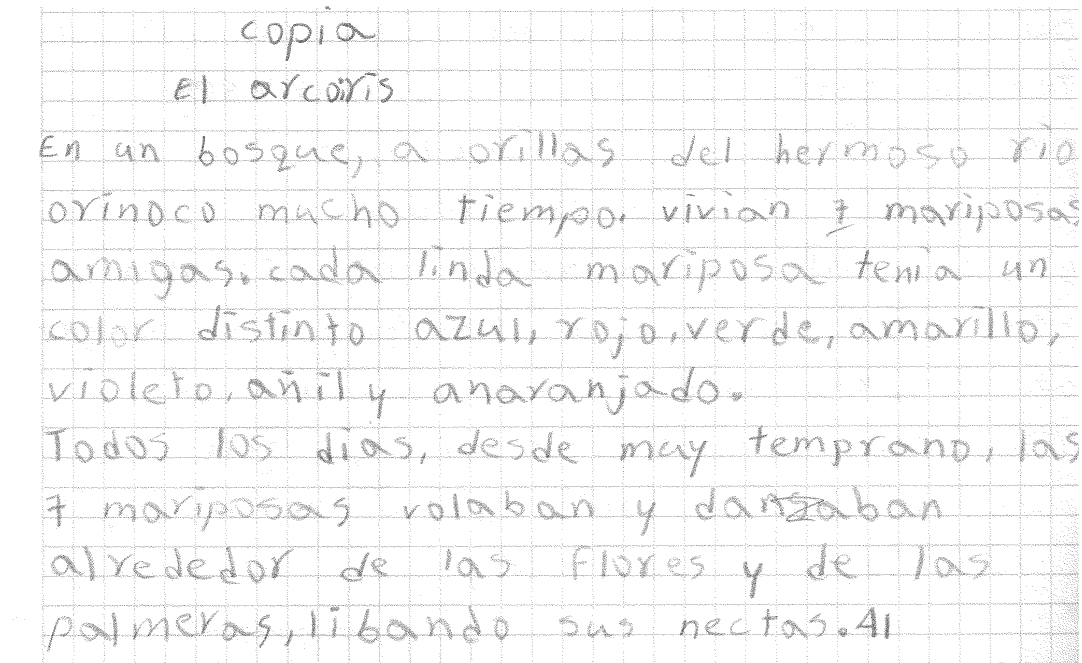 copia
El arcoiris
En un bosque, a orillas del hermoso rio
orinoco mucho tiempo. vivian 7 mariposas
amigas. cada linda mariposa tenia un
color distinto azul, rojo, verde, amarillo,
violeto, añil y anaranjado.
Todos los dias, desde muy temprano, las
7 mariposas volaban y danzaban
alrededor de las flores y de las
palmeras, libando sus nectas. 41